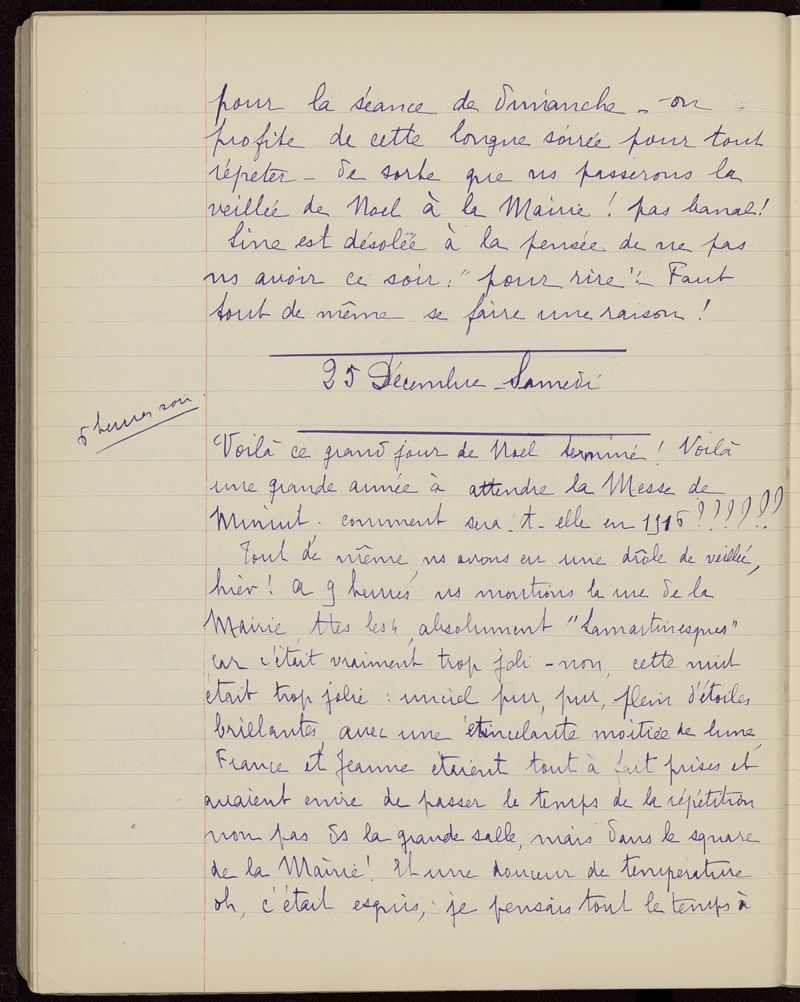 pour la séance de dimanche - on
profite de cette longue soirée pour tout
répéter - de sorte que ns passerons la
veillée de Noel à la Mairie ! pas banal !
Line est désolée à la pensée de ne pas
ns avoir ce soir : "pour rire" : Faut
tout de même se faire une raison !
25 Décembre - Samedi
5 heures soir.
Voilà ce grand jour de Noel terminé ! Voilà
une grande année à attendre la Messe de
Minuit ; comment sera-t-elle en 1916 ??????
Tout de même, ns avons eu une drôle de veillée,
hier ! a 9 heures ns montions la rue de la
Mairie, ttes les 4, absolument "Lamartinesques"
car c'était vraiment trop joli - non, cette nuit
était trop jolie : un ciel pur, pur, plein d'étoiles
brillantes, avec une étincelante moitiée de lune,
France et Jeanne étaient tout à fait prises et
avaient envie de passer le temps de la répétition
non pas ds la grande salle, mais dans le square
de la Mairie ! Et une douceur de température
oh, c'était esquis, je pensais tout le temps à